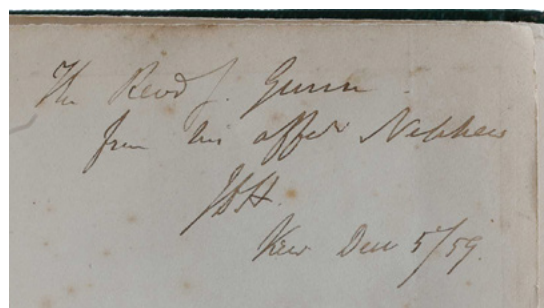 The Revd J. Gunn
from his affec Nephew
JDH.
Kew Dec 5/59.